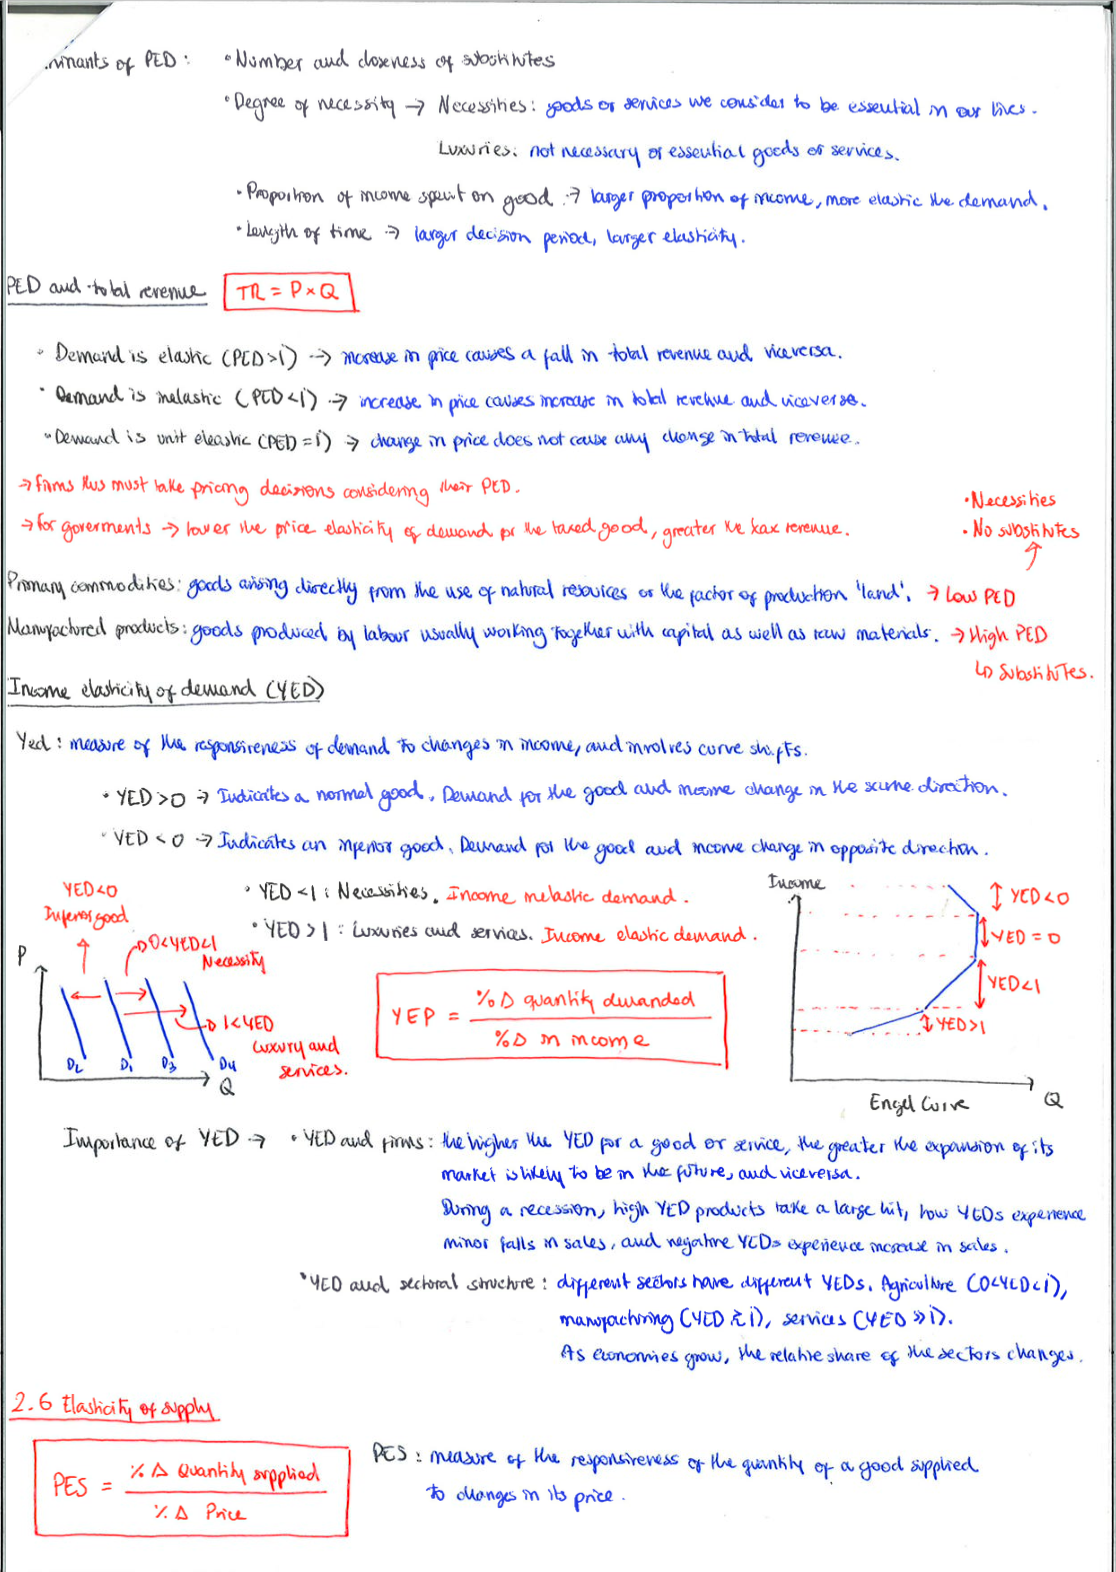 minants of PED : • Number and closeness of substitutes
• Degree of necessity → Necessities: goods or services we consider to be essential in our lives.
Luxuries: not necessary or essential goods or services.
• Proportion of income spent on good → larger proportion of income, more elastic the demand.
• Length of time → larger decision period, larger elasticity.
PED and total revenue TR = P×Q
• Demand is elastic (PED>1) → increase in price causes a fall in total revenue and viceversa.
• Demand is inelastic (PED<1) → increase in price causes increase in total revenue and viceversa.
• Demand is unit eleastic (PED=1) → change in price does not cause any change in total revenue.
→ firms thus must take pricing decisions considering their PED.
→ for goverments → lower the price elasticity of demand for the taxed good, greater the tax revenue.
• Necessities
• No substitutes
Primary commodities: goods arising directly from the use of natural resources or the factor of production 'land'. → Low PED
Manufactured products: goods produced by labour usually working together with capital as well as raw materials. → High PED
↳ Substitutes.
Income elasticity of demand (YED)
Yed : measure of the responsiveness of demand to changes in income, and involves curve shifts.
• YED>0 → Indicates a normal good. Demand for the good and income change in the same direction.
• YED<0 → Indicates an inferior good. Demand for the good and income change in opposite direction.
• YED<1 : Necessities. Income inelastic demand.
• YED>1 : Luxuries and services. Income elastic demand.
YED<0
Inferior good
0<YED<1
Necessity
P
1<YED
Luxury and
services.
D₂ D₁ D₃ D₄
Q
YEP = %Δ quantity demanded
%Δ in income
Income
YED<0
YED=0
YED<1
YED>1
Engel Curve Q
Importance of YED → • YED and firms: the higher the YED for a good or service, the greater the expansion of its
market is likely to be in the future, and viceversa.
During a recession, high YED products take a large hit, low YEDs experience
minor falls in sales, and negative YEDs experience increase in sales.
• YED and sectoral structure : different sectors have different YEDs. Agriculture (0<YED<1),
manufacturing (YED≥1), services (YED≫1).
As economies grow, the relative share of the sectors changes.
2.6 Elasticity of supply
PES = %Δ Quantity supplied
%Δ Price
PES : measure of the responsiveness of the quantity of a good supplied
to changes in its price.